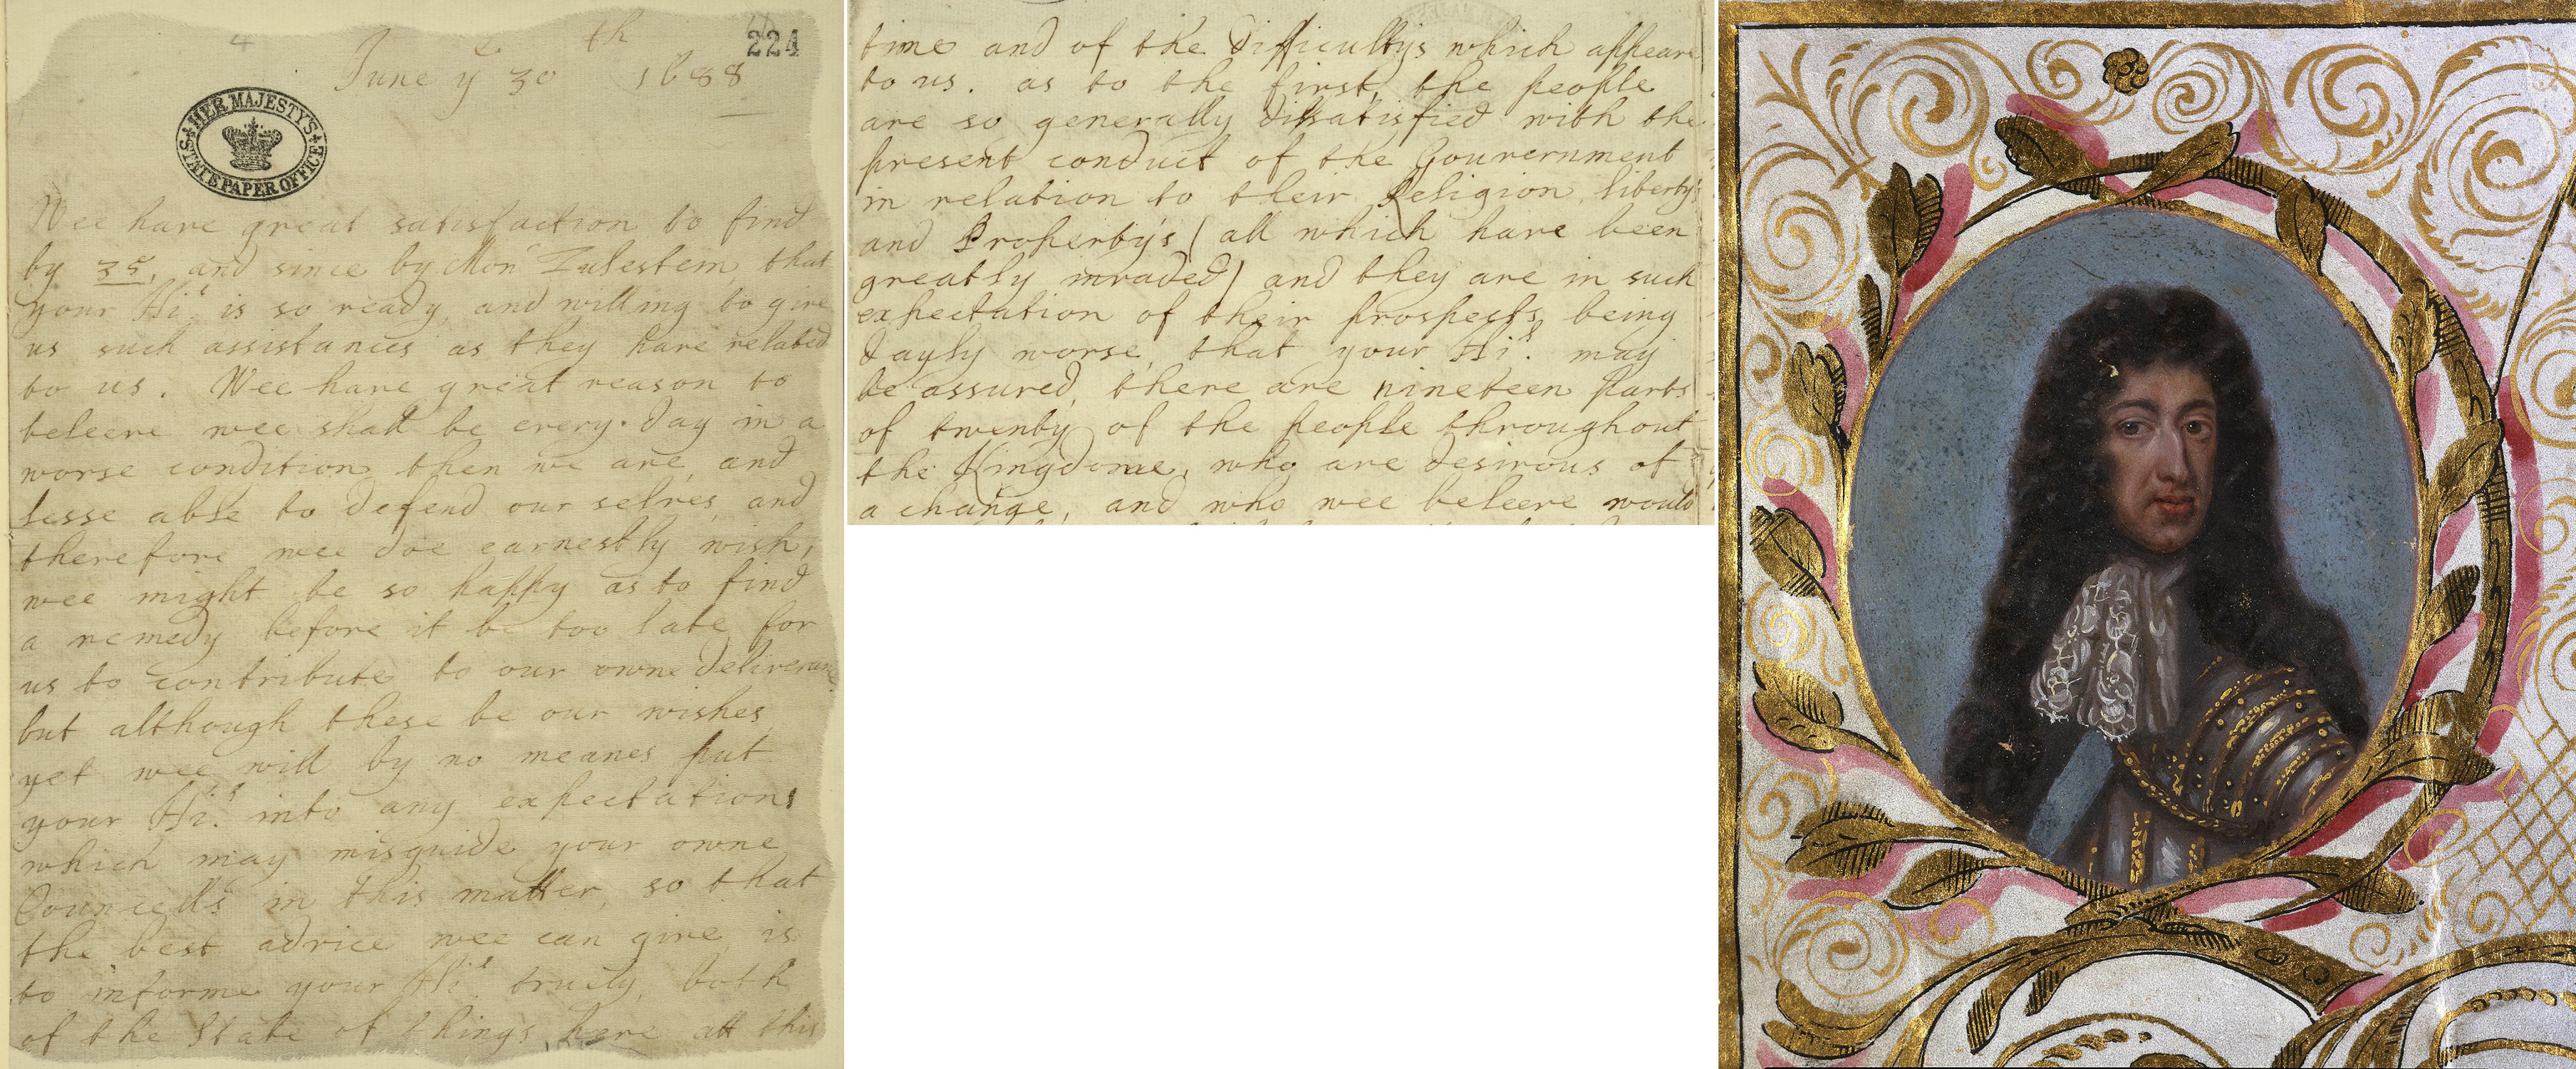 224
June yͤ 30th 1688
HER MAJESTY'S STATE PAPER OFFICE
Wee have great satisfaction to find
by 35, and since by Monʳ Zulestein that
your Hiˢ is so ready, and willing to give
us such assistances as they have related
to us. Wee have great reason to
beleeve wee shall be every day in a
worse condition then we are, and
lesse able to defend our selves, and
therefore wee doe earnestly wish,
wee might be so happy as to find
a remedy before it be too late for
us to contribute to our owne deliverance
but although these be our wishes
yet wee will by no meanes put
your Hiˢ. into any expectations
which may misguide your owne
Councells in this matter, so that
the best advice wee can give is
to informe your Hiˢ truely, both
of the State of things here att this
time and of the Difficultys which appeare
to us. as to the first, the people
are so generally dissatisfied with the
present conduct of the Gouvernment
in relation to their Religion, libertys
and Propertys (all which have been
greatly invaded) and they are in such
expectation of their prospects being
dayly worse, that your Hiˢ. may
be assured, there are nineteen parts
of twenty of the people throughout
the Kingdome, who are desirous of
a change, and who wee beleeve would